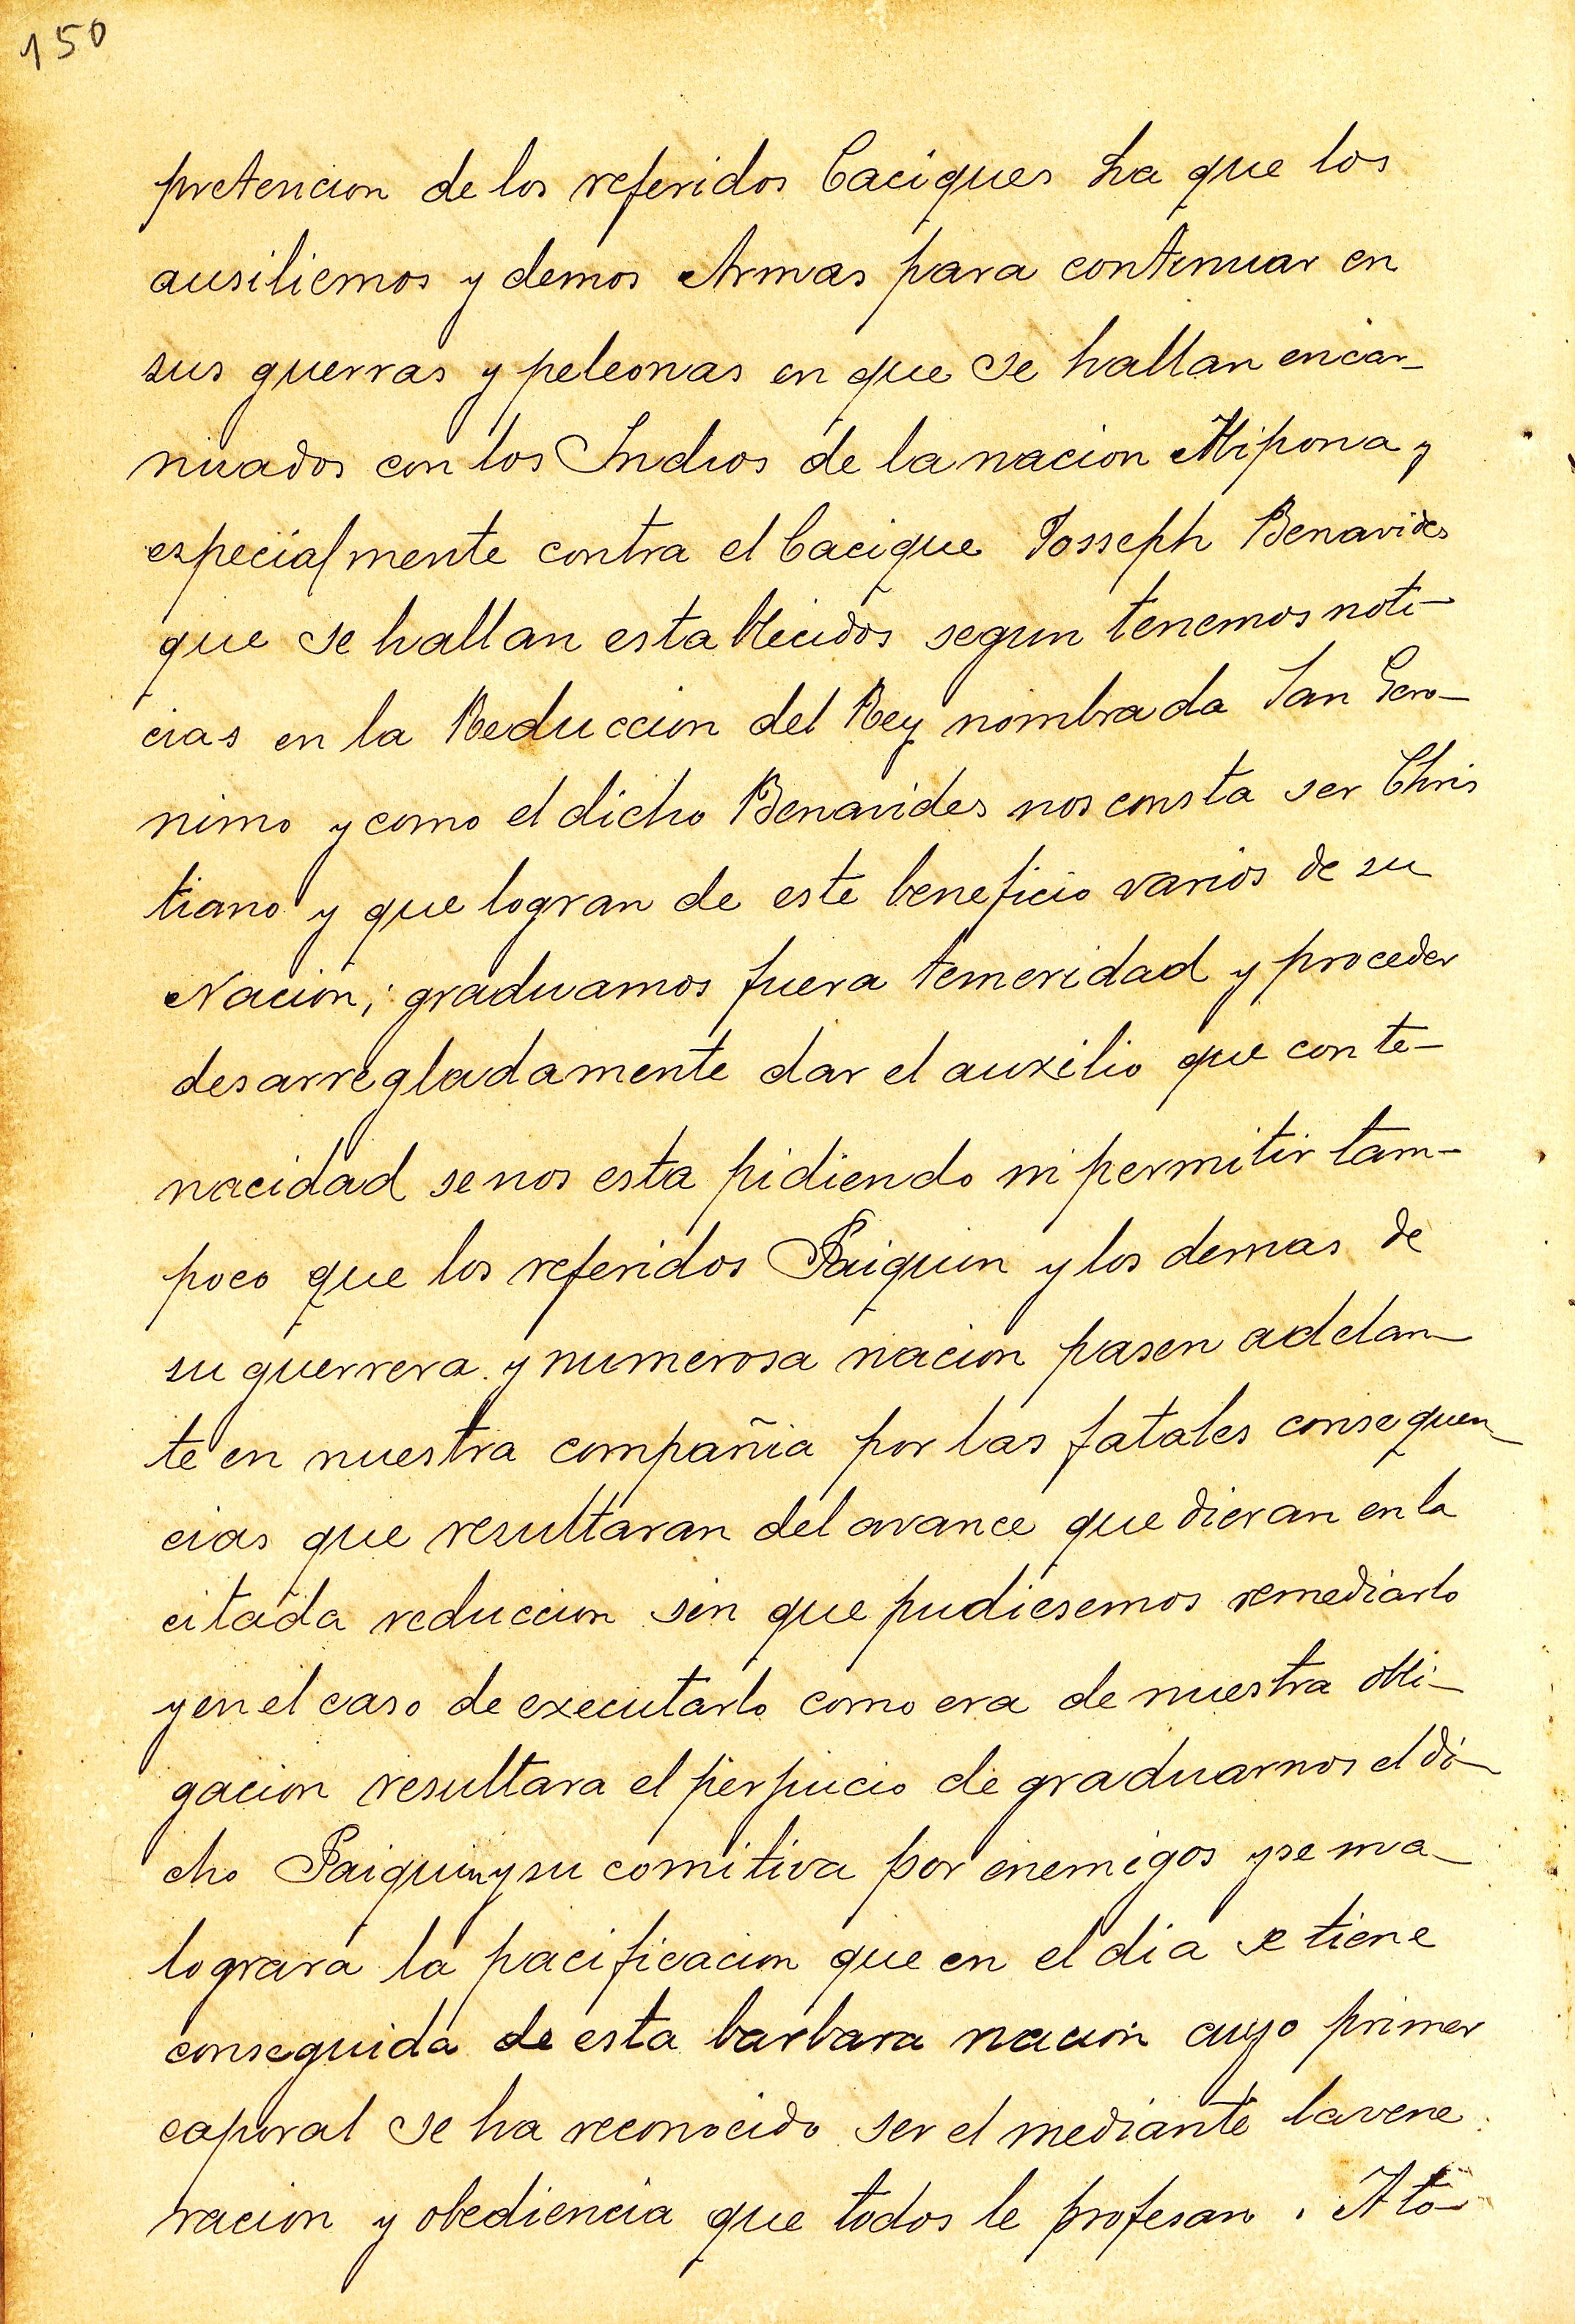 150
pretencion de los referidos Caciques ha que los
ausiliemos y demos Armas para continuar en
sus guerras y peleonas en que se hallan encar-
nisados con los Indios de la nacion Abipona y
especialmente contra el Cacique Josseph Benavides
que se hallan establecidos segun tenemos noti-
cias en la Reduccion del Rey nombrada San Gero-
nimo y como el dicho Benavides nos consta ser Chris
tiano y que logran de este beneficio varios de su
Nacion; graduamos fuera temeridad y proceder
desarregladamente dar el auxilio que con te-
nacidad se nos esta pidiendo ni permitir tam-
poco que los referidos Paiquin y los demas de
su guerrera y numerosa nacion pasen adelan-
te en nuestra compañia por las fatales consequen-
cias que resultaran del avance que dieran en la
citada reduccion sin que pudiesemos remediarlo
y en el caso de executarlo como era de nuestra obli-
gacion resultara el perjuicio de graduarnos el di-
cho Paiquin y su comitiva por enemigos y se ma-
lograra la pacificacion que en el dia se tiene
conseguida de esta barbara nacion cuyo primer
caporal se ha reconocido ser el mediante la vene
racion y obediencia que todos le profesan. A to-